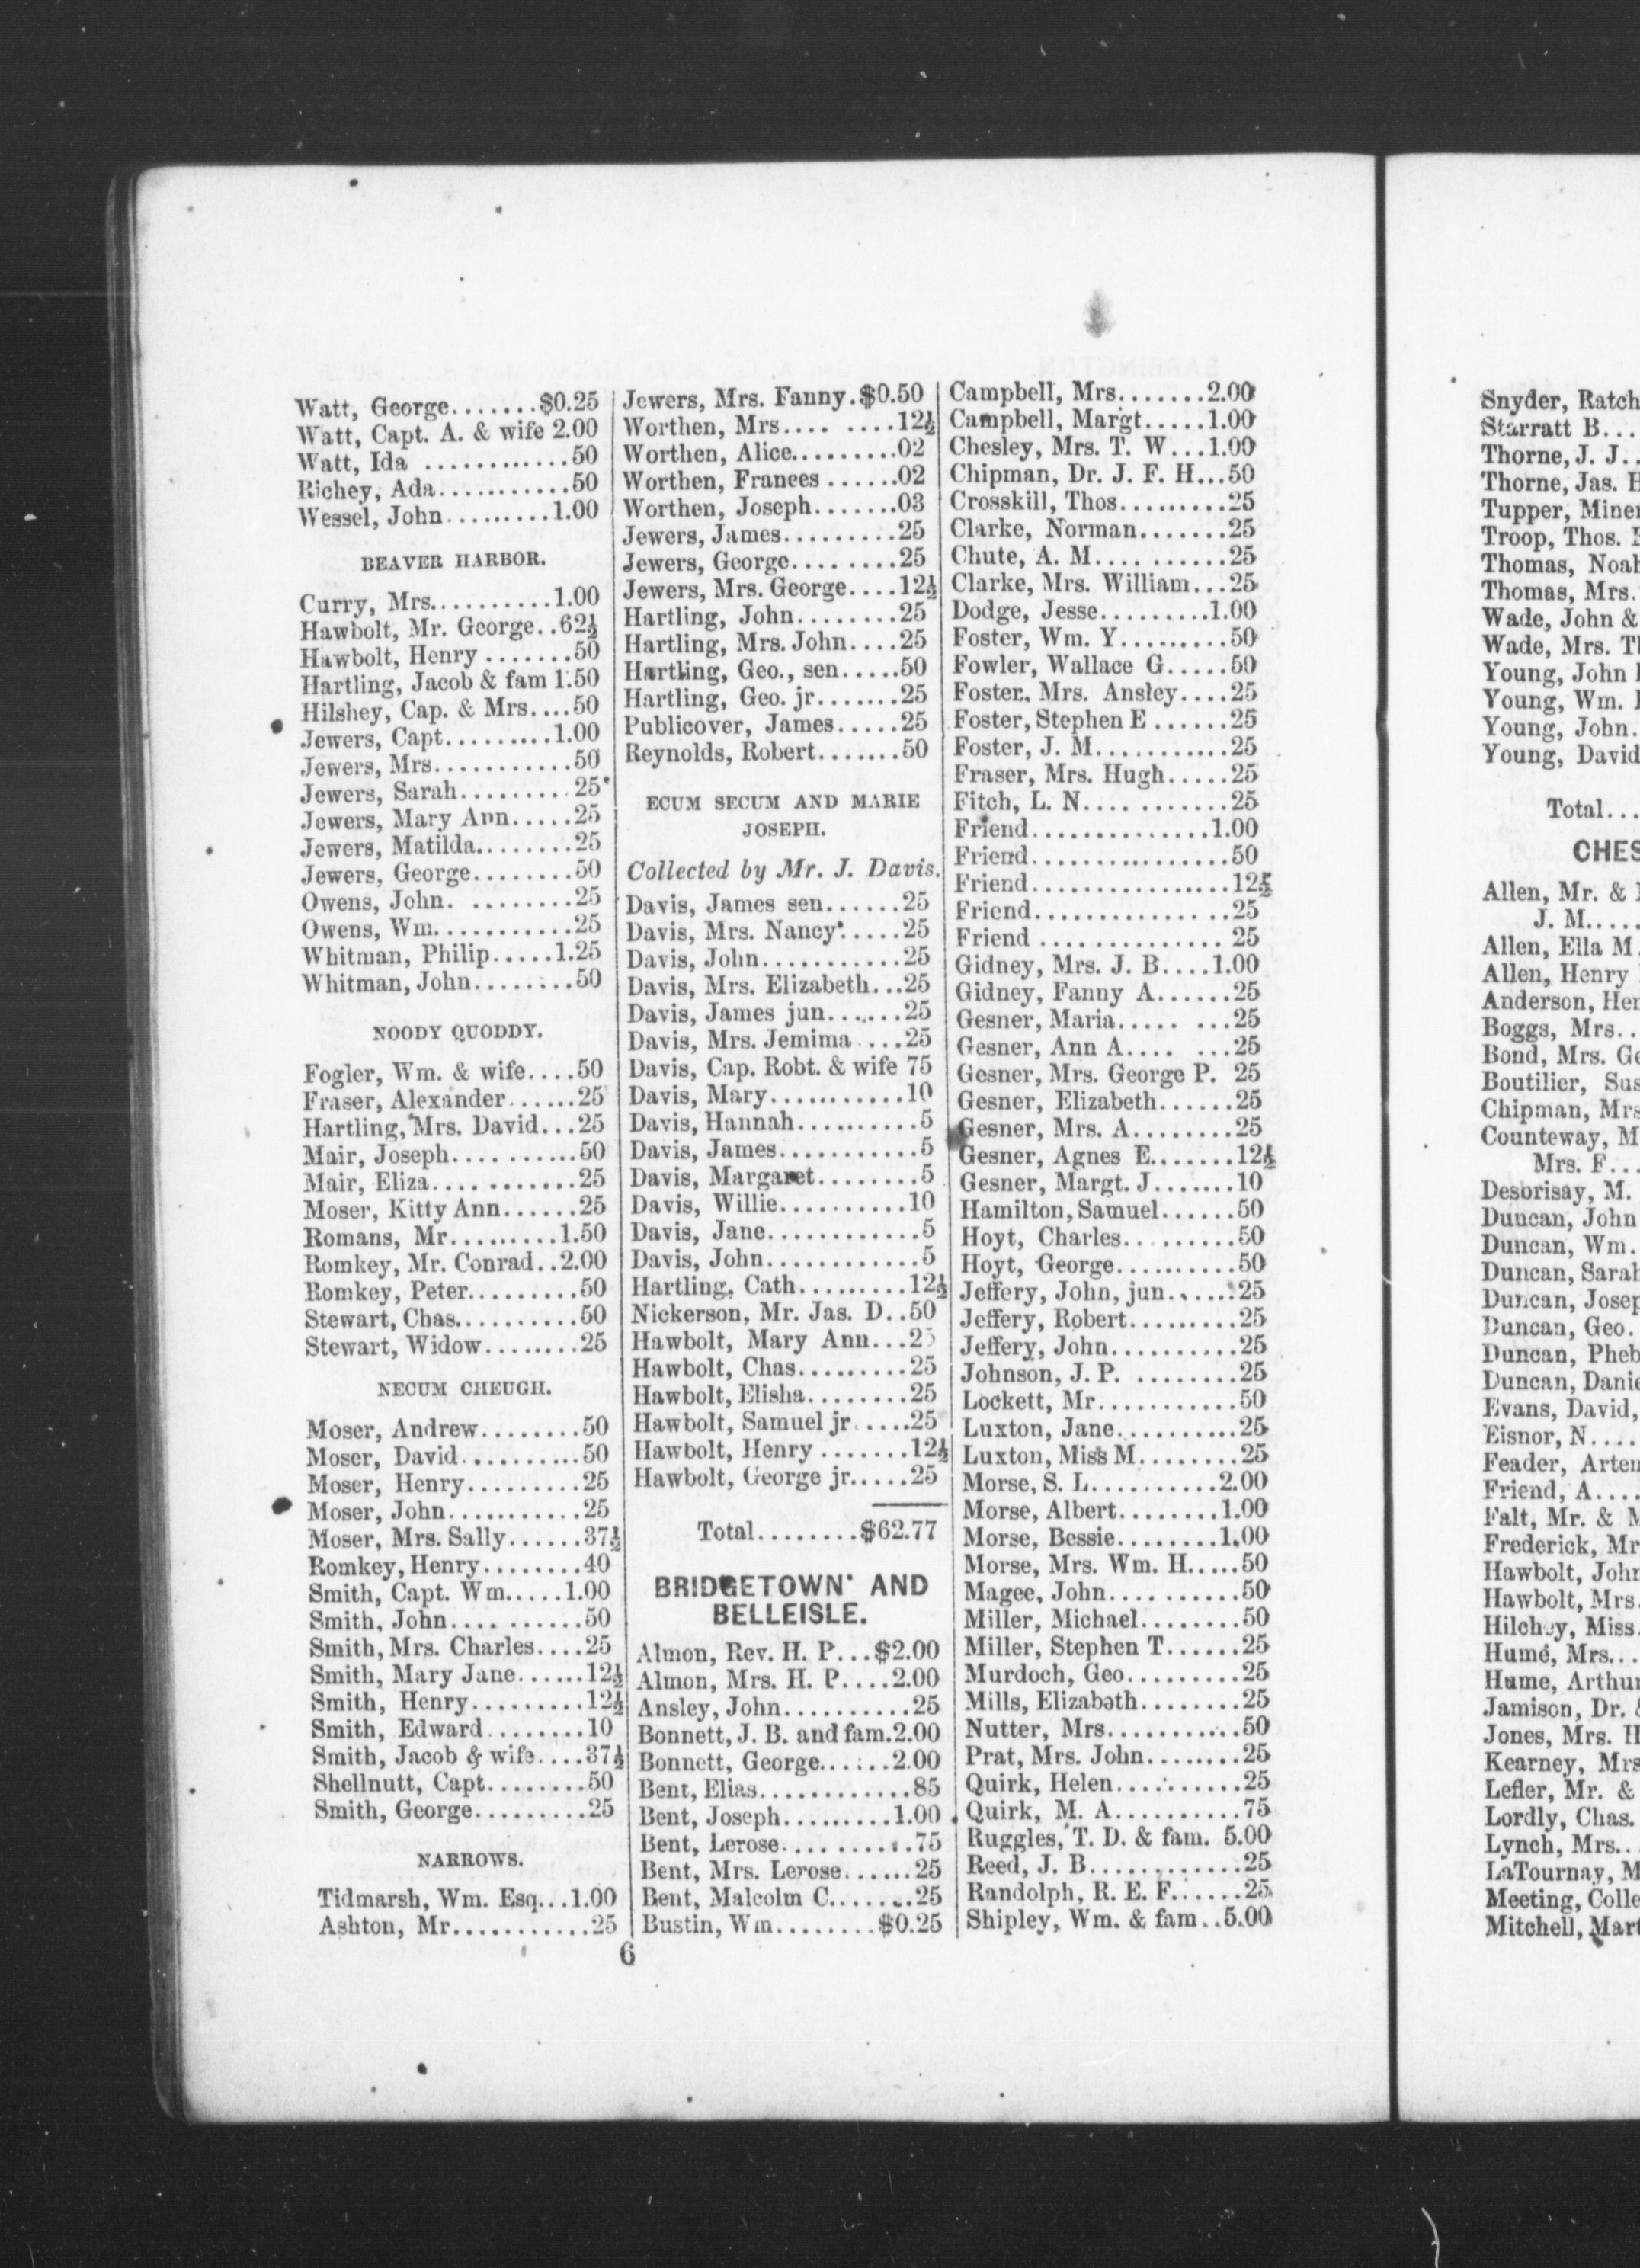 Watt, George.......$0.25
Watt, Capt. A. & wife 2.00
Watt, Ida ............50
Richey, Ada...........50
Wessel, John.........1.00
BEAVER HARBOR.
Curry, Mrs..........1.00
Hawbolt, Mr. George..62½
Hawbolt, Henry .......50
Hartling, Jacob & fam 1.50
Hilshey, Cap. & Mrs....50
Jewers, Capt.........1.00
Jewers, Mrs...........50
Jewers, Sarah.........25
Jewers, Mary Ann.....25
Jewers, Matilda........25
Jewers, George........50
Owens, John. ........25
Owens, Wm...........25
Whitman, Philip.....1.25
Whitman, John........50
NOODY QUODDY.
Fogler, Wm. & wife....50
Fraser, Alexander......25
Hartling, Mrs. David...25
Mair, Joseph..........50
Mair, Eliza.... .......25
Moser, Kitty Ann......25
Romans, Mr.........1.50
Romkey, Mr. Conrad..2.00
Romkey, Peter.........50
Stewart, Chas..........50
Stewart, Widow........25
NECUM CHEUGH.
Moser, Andrew........50
Moser, David..........50
Moser, Henry.........25
Moser, John...........25
Moser, Mrs. Sally......37½
Romkey, Henry........40
Smith, Capt. Wm.....1.00
Smith, John.... ......50
Smith, Mrs. Charles....25
Smith, Mary Jane......12½
Smith, Henry.........12½
Smith, Edward........10
Smith, Jacob & wife....37½
Shellnutt, Capt........50
Smith, George.........25
NARROWS.
Tidmarsh, Wm. Esq...1.00
Ashton, Mr...........25
Jewers, Mrs. Fanny.$0.50
Worthen, Mrs.... ....12½
Worthen, Alice.........02
Worthen, Frances ......02
Worthen, Joseph.......03
Jewers, James.........25
Jewers, George........25
Jewers, Mrs. George....12½
Hartling, John........25
Hartling, Mrs. John....25
Hartling, Geo., sen.....50
Hartling, Geo. jr.......25
Publicover, James.....25
Reynolds, Robert.......50
ECUM SECUM AND MARIE
JOSEPH.
Collected by Mr. J. Davis.
Davis, James sen......25
Davis, Mrs. Nancy.....25
Davis, John...........25
Davis, Mrs. Elizabeth...25
Davis, James jun.......25
Davis, Mrs. Jemima ....25
Davis, Cap. Robt. & wife 75
Davis, Mary...........10
Davis, Hannah..........5
Davis, James...........5
Davis, Margaret........5
Davis, Willie..........10
Davis, Jane............5
Davis, John............5
Hartling, Cath.........12½
Nickerson, Mr. Jas. D..50
Hawbolt, Mary Ann...25
Hawbolt, Chas.........25
Hawbolt, Elisha........25
Hawbolt, Samuel jr.....25
Hawbolt, Henry .......12½
Hawbolt, George jr.....25
Total........$62.77
BRIDGETOWN AND
BELLEISLE.
Almon, Rev. H. P...$2.00
Almon, Mrs. H. P....2.00
Ansley, John..........25
Bonnett, J. B. and fam.2.00
Bonnett, George......2.00
Bent, Elias............85
Bent, Joseph.........1.00
Bent, Lerose...........75
Bent, Mrs. Lerose......25
Bent, Malcolm C.......25
Bustin, Wm........$0.25
Campbell, Mrs.......2.00
Campbell, Margt.....1.00
Chesley, Mrs. T. W...1.00
Chipman, Dr. J. F. H...50
Crosskill, Thos.........25
Clarke, Norman.......25
Chute, A. M..........25
Clarke, Mrs. William...25
Dodge, Jesse.........1.00
Foster, Wm. Y.........50
Fowler, Wallace G.....50
Foster, Mrs. Ansley....25
Foster, Stephen E ......25
Foster, J. M...........25
Fraser, Mrs. Hugh.....25
Fitch, L. N.... .......25
Friend..............1.00
Friend................50
Friend................12½
Friend................25
Friend ............... 25
Gidney, Mrs. J. B....1.00
Gidney, Fanny A......25
Gesner, Maria..... ...25
Gesner, Ann A.... ...25
Gesner, Mrs. George P. 25
Gesner, Elizabeth......25
Gesner, Mrs. A........25
Gesner, Agnes E.......12½
Gesner, Margt. J.......10
Hamilton, Samuel......50
Hoyt, Charles.........50
Hoyt, George..........50
Jeffery, John, jun......25
Jeffery, Robert.........25
Jeffery, John..........25
Johnson, J. P. ........25
Lockett, Mr...........50
Luxton, Jane..........25
Luxton, Miss M........25
Morse, S. L..........2.00
Morse, Albert........1.00
Morse, Bessie........1.00
Morse, Mrs. Wm. H.....50
Magee, John...........50
Miller, Michael........50
Miller, Stephen T......25
Murdoch, Geo.........25
Mills, Elizabeth........25
Nutter, Mrs...........50
Prat, Mrs. John........25
Quirk, Helen..........25
Quirk, M. A..........75
Ruggles, T. D. & fam. 5.00
Reed, J. B............25
Randolph, R. E. F......25
Shipley, Wm. & fam..5.00
6
Snyder, Ratch
Starratt B...
Thorne, J. J..
Thorne, Jas. H
Tupper, Miner
Troop, Thos.
Thomas, Noah
Thomas, Mrs.
Wade, John &
Wade, Mrs. Th
Young, John
Young, Wm.
Young, John.
Young, David
Total...
CHES
Allen, Mr. &
J. M.....
Allen, Ella M.
Allen, Henry
Anderson, Hen
Boggs, Mrs..
Bond, Mrs. Ge
Boutilier, Sus
Chipman, Mrs
Counteway, M
Mrs. F...
Desorisay, M.
Duncan, John
Duncan, Wm.
Duncan, Sarah
Duncan, Josep
Duncan, Geo.
Duncan, Pheb
Duncan, Danie
Evans, David,
Eisnor, N....
Feader, Artem
Friend, A....
Falt, Mr. & M
Frederick, Mr
Hawbolt, John
Hawbolt, Mrs.
Hilchey, Miss.
Hume, Mrs...
Hume, Arthur
Jamison, Dr. &
Jones, Mrs. H
Kearney, Mrs
Lefler, Mr. &
Lordly, Chas.
Lynch, Mrs..
LaTournay, M
Meeting, Colle
Mitchell, Mart